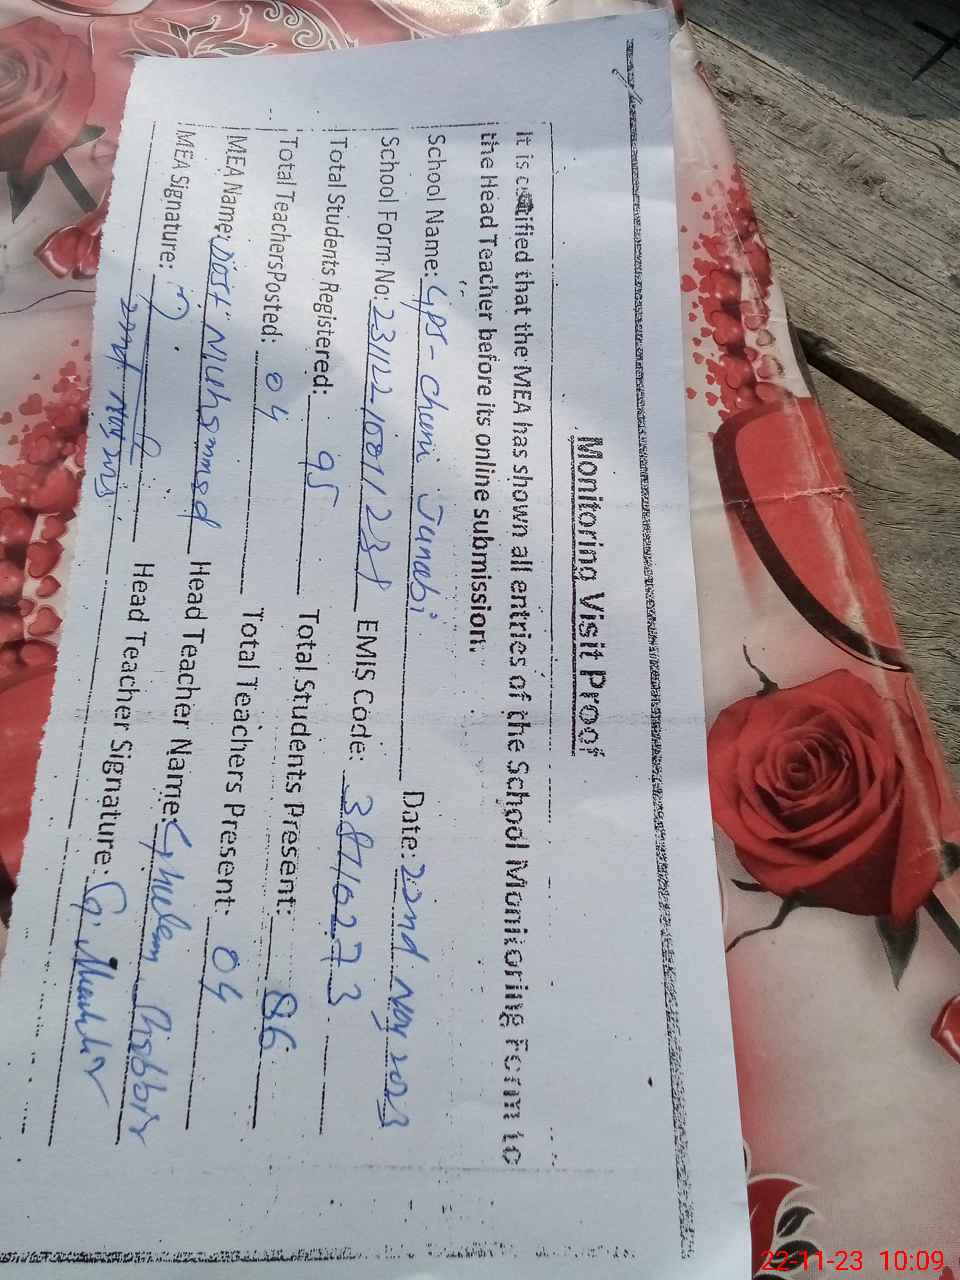 Monitoring Visit Proof
It is certified that the MEA has shown all entries of the School Monitoring Form to
the Head Teacher before its online submission.
School Name: GPS- Chuni Junabi Date: 22nd Nov 2023
School Form No: EMIS Code: 38716273
Total Students Registered: 95 Total Students Present: 86
Total Teachers Posted: 04 Total Teachers Present: 04
MEA Name: Dost Muhammad Head Teacher Name: Ghulam Shabbir
MEA Signature: Head Teacher Signature:
22nd Nov 2023
22-11-23 10:09